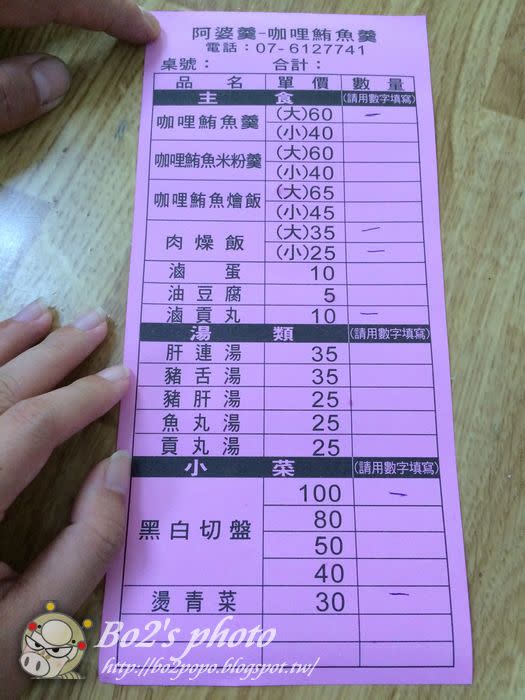 阿婆羹-咖哩鮪魚羹
電話：07-6127741
桌號： 合計：
品名 單價 數量
主食 (請用數字填寫)
咖哩鮪魚羹 (大)60 一
(小)40
咖哩鮪魚米粉羹 (大)60
(小)40
咖哩鮪魚燴飯 (大)65
(小)45
肉燥飯 (大)35 一
(小)25 一
滷蛋 10
油豆腐 5
滷貢丸 10 一
湯類 (請用數字填寫)
肝連湯 35
豬舌湯 35
豬肝湯 25
魚丸湯 25
貢丸湯 25
小菜 (請用數字填寫)
黑白切盤 100 一
80
50
40
燙青菜 30 一
Bo2's photo
http://bo2popo.blogspot.tw/